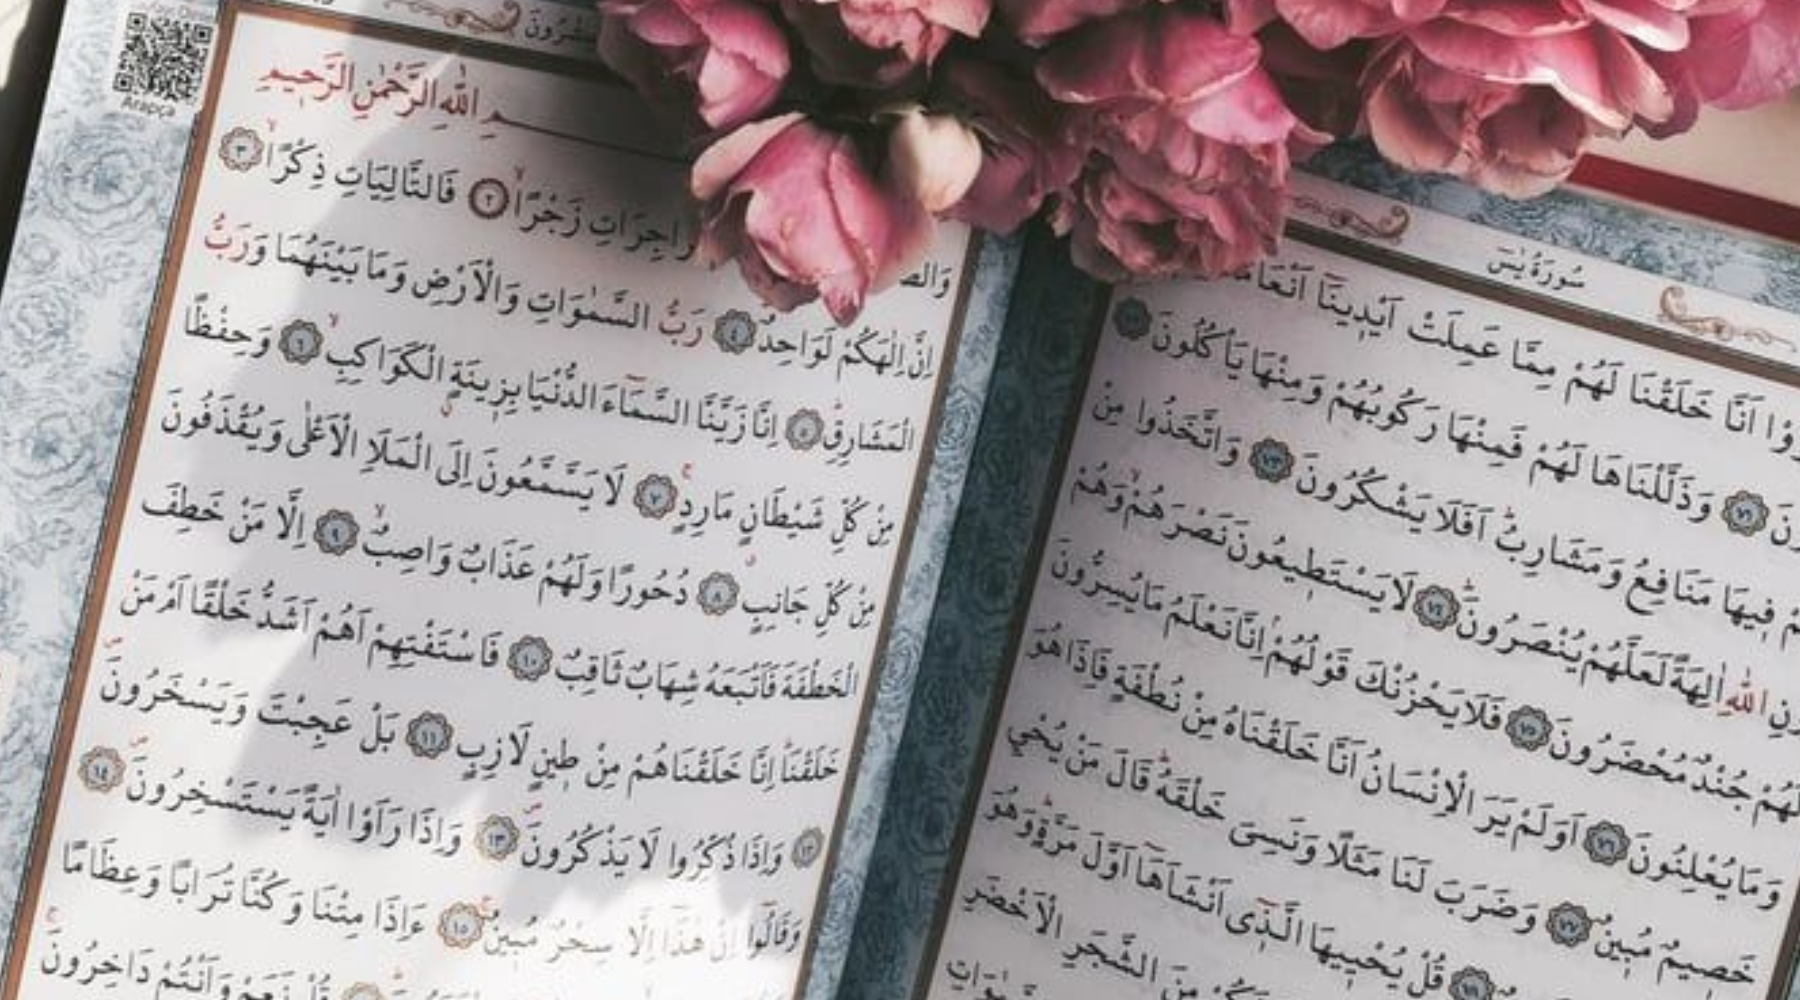 سُورَةُ يٰسٓ
اَنَّا خَلَقْنَا لَهُمْ مِمَّا عَمِلَتْ اَيْدِينَٓا
وَذَلَّلْنَاهَا لَهُمْ فَمِنْهَا رَكُوبُهُمْ وَمِنْهَا يَأْكُلُونَ
فِيهَا مَنَافِعُ وَمَشَارِبُۜ اَفَلَا يَشْكُرُونَ ﴿٧٣﴾ وَاتَّخَذُوا مِنْ
اللّٰهِ اٰلِهَةً لَعَلَّهُمْ يُنْصَرُونَۜ ﴿٧٤﴾ لَا يَسْتَطِيعُونَ نَصْرَهُمْۙ وَهُمْ
لَهُمْ جُنْدٌ مُحْضَرُونَ ﴿٧٥﴾ فَلَا يَحْزُنْكَ قَوْلُهُمْۢ اِنَّا نَعْلَمُ مَا يُسِرُّونَ
وَمَا يُعْلِنُونَ ﴿٧٦﴾ اَوَلَمْ يَرَ الْاِنْسَانُ اَنَّا خَلَقْنَاهُ مِنْ نُطْفَةٍ فَاِذَا هُوَ
خَصِيمٌ مُبِينٌ ﴿٧٧﴾ وَضَرَبَ لَنَا مَثَلًا وَنَسِيَ خَلْقَهُۜ قَالَ مَنْ يُحْيِي
قُلْ يُحْيِيهَا الَّذ۪ٓي اَنْشَاَهَٓا اَوَّلَ مَرَّةٍۜ وَهُوَ
مِنَ الشَّجَرِ الْاَخْضَرِ
Arapça
ـمِ اللّٰهِ الرَّحْمٰنِ الرَّحِيمِ
زَجْرًاۙ ﴿٢﴾ فَالتَّالِيَاتِ ذِكْرًاۙ ﴿٣﴾
اِنَّ اِلٰهَكُمْ لَوَاحِدٌۜ ﴿٤﴾ رَبُّ السَّمٰوَاتِ وَالْاَرْضِ وَمَا بَيْنَهُمَا وَرَبُّ
الْمَشَارِقِۜ ﴿٥﴾ اِنَّا زَيَّنَّا السَّمَٓاءَ الدُّنْيَا بِزِينَةٍۨ الْكَوَاكِبِۙ ﴿٦﴾ وَحِفْظًا
مِنْ كُلِّ شَيْطَانٍ مَارِدٍۚ ﴿٧﴾ لَا يَسَّمَّعُونَ اِلَى الْمَلَاِ الْاَعْلٰى وَيُقْذَفُونَ
مِنْ كُلِّ جَانِبٍۗ ﴿٨﴾ دُحُورًا وَلَهُمْ عَذَابٌ وَاصِبٌۙ ﴿٩﴾ اِلَّا مَنْ خَطِفَ
الْخَطْفَةَ فَاَتْبَعَهُ شِهَابٌ ثَاقِبٌ ﴿١٠﴾ فَاسْتَفْتِهِمْ اَهُمْ اَشَدُّ خَلْقًا اَمْ مَنْ
خَلَقْنَاۜ اِنَّا خَلَقْنَاهُمْ مِنْ طِينٍ لَازِبٍ ﴿١١﴾ بَلْ عَجِبْتَ وَيَسْخَرُونَۖ
﴿١٢﴾ وَاِذَا ذُكِّرُوا لَا يَذْكُرُونَۖ ﴿١٣﴾ وَاِذَا رَاَوْا اٰيَةً يَسْتَسْخِرُونَۖ ﴿١٤﴾
وَقَالُٓوا اِنْ هٰذَٓا اِلَّا سِحْرٌ مُبِينٌۚ ﴿١٥﴾ ءَاِذَا مِتْنَا وَكُنَّا تُرَابًا وَعِظَامًا
قُلْ نَعَمْ وَاَنْتُمْ دَاخِرُونَۚ